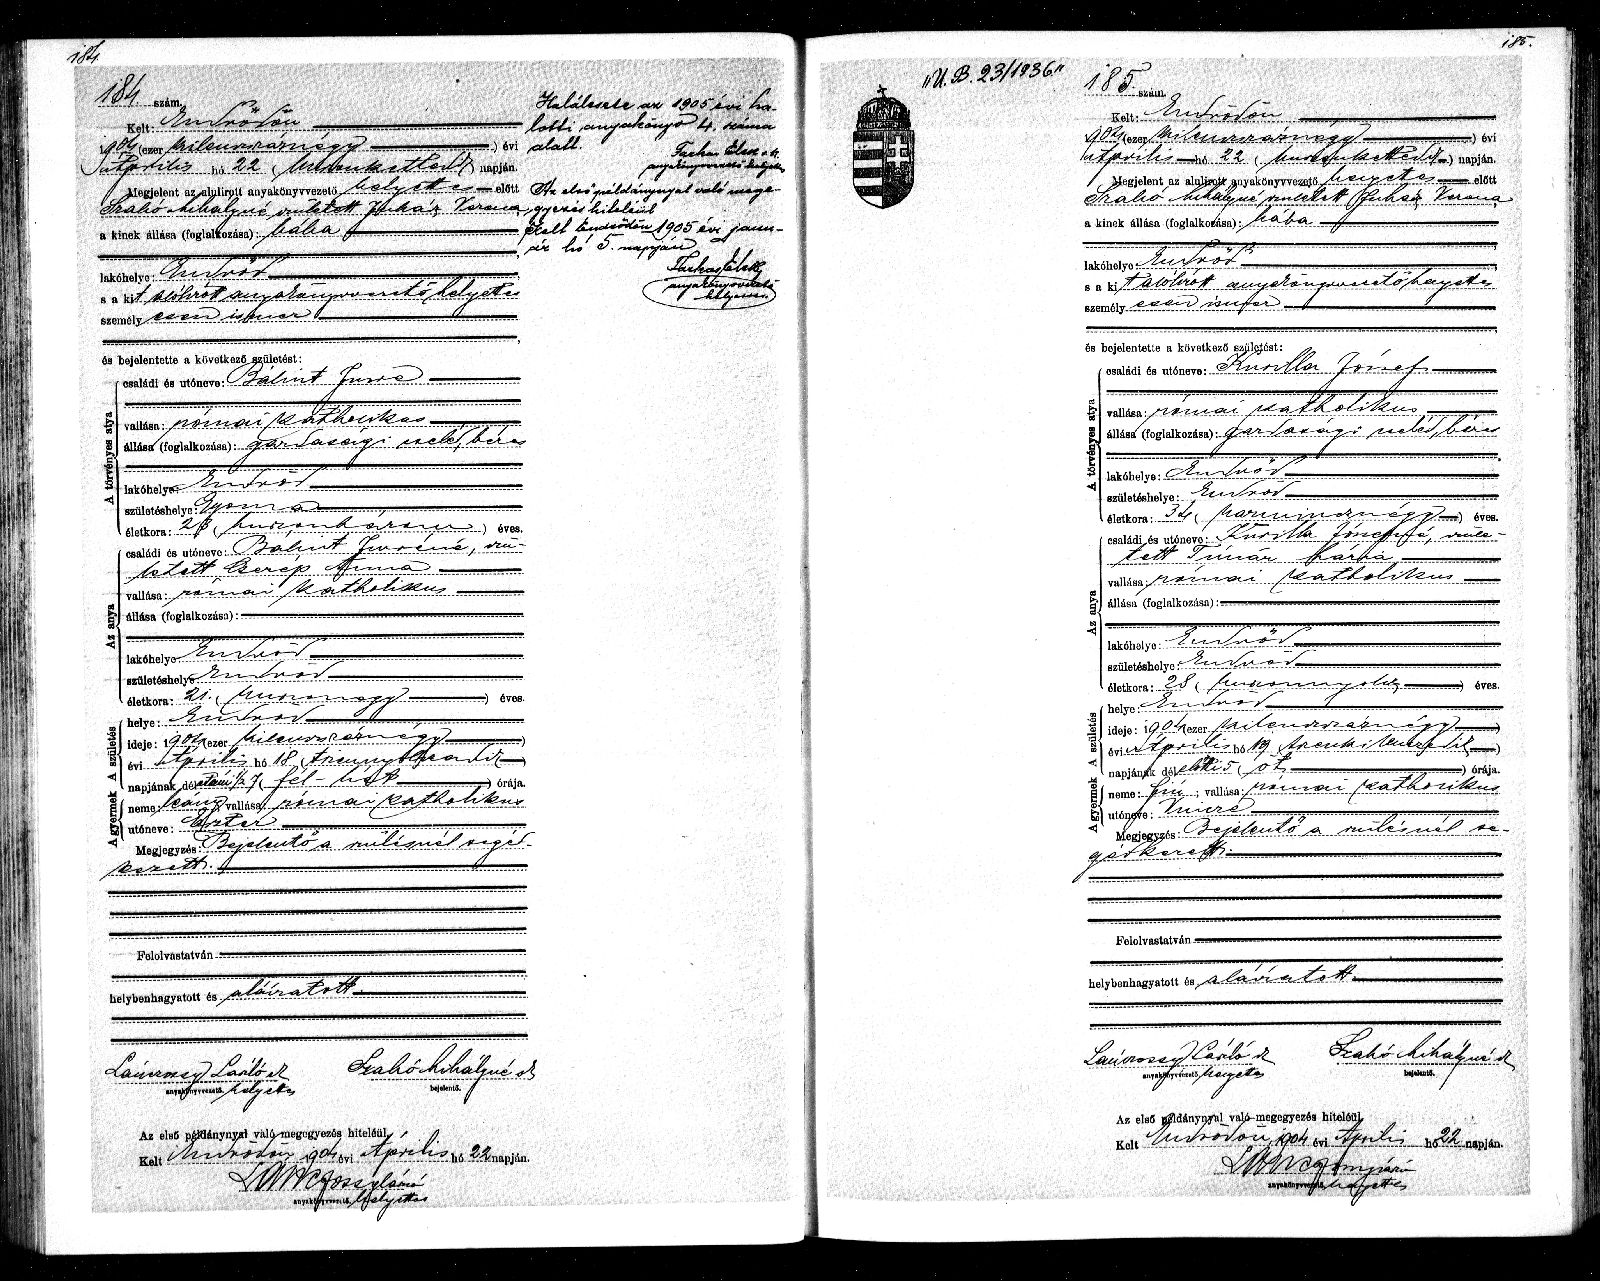 184.
184. szám.
Kelt: Endrődön
1904 (ezer kilenczszáznégy) évi
április hó 22 (huszonkettedik) napján.
Megjelent az alulirott anyakönyvvezető helyettes előtt
Szabó Mihályné született Juhász Verona
a kinek állása (foglalkozása): bába
lakóhelye: Endrőd
s a kit alólirott anyakönyvvezető helyettes
személyesen ismer
és bejelentette a következő születést:
A törvényes atya
családi és utóneve: Bálint Imre
vallása: római katholikus
állása (foglalkozása): gazdasági cseléd, béres
lakóhelye: Endrőd
születéshelye: Gyoma
életkora: 23 (huszonhárom) éves.
Az anya
családi és utóneve: Bálint Imréné, szü-
letett Cserép Anna
vallása: római katholikus
állása (foglalkozása):
lakóhelye: Endrőd
születéshelye: Endrőd
életkora: 21. (huszonegy) éves.
A gyermek A születés
helye: Endrőd
ideje: 1904 (ezer kilenczszáznégy)
évi április hó 18 (tizennyolczadik)
napjának délutáni 1/2 7 (fél hét) órája.
neme: leány; vallása: római katholikus
utóneve: Eszter
Megjegyzés: Bejelentő a szülésnél segéd-
kezett.
Felolvastatván
helybenhagyatott és aláiratott.
László Szabó Mihályné
anyakönyvvezető helyettes bejelentő.
Az első példánynyal való megegyezés hiteléül.
Kelt Endrődön 1904 évi április hó 22 napján.
anyakönyvvezető helyettes
Halálesete az 1905 évi ha-
lotti anyakönyv 4. száma
alatt.
Elek s.k.
anyakönyvvezető helyettes
Az első példánynyal való mege-
gyezés hiteléül
Kelt Endrődön 1905 évi janu-
ár hó 5. napján
Elek
anyakönyvvezető
helyettes
185.
"U. B. 23/1936."
185 szám.
Kelt: Endrődön
1904 (ezer kilenczszáznégy) évi
április hó 22 (huszonkettedik) napján.
Megjelent az alulirott anyakönyvvezető helyettes előtt
Szabó Mihályné született Juhász Verona
a kinek állása (foglalkozása): bába
lakóhelye: Endrőd
s a kit alólirott anyakönyvvezető helyettes
személyesen ismer
és bejelentette a következő születést:
A törvényes atya
családi és utóneve: Kurilla József
vallása: római katholikus
állása (foglalkozása): gazdasági cseléd, béres
lakóhelye: Endrőd
születéshelye: Endrőd
életkora: 34 (harmincznégy) éves.
Az anya
családi és utóneve: Kurilla Józsefné, szüle-
tett Tímár Mária
vallása: római katholikus
állása (foglalkozása):
lakóhelye: Endrőd
születéshelye: Endrőd
életkora: 28 (huszonnyolcz) éves.
A gyermek A születés
helye: Endrőd
ideje: 1904 (ezer kilenczszáznégy)
évi április hó 19 (tizenkilenczedik)
napjának délelőtti 5 (öt) órája.
neme: fiú; vallása: római katholikus
utóneve: Vincze
Megjegyzés: Bejelentő a szülésnél se-
gédkezett.
Felolvastatván
helybenhagyatott és aláíratott.
László Szabó Mihályné
anyakönyvvezető helyettes bejelentő.
Az első példánynyal való megegyezés hiteléül.
Kelt Endrődön 1904 évi április hó 22 napján.
anyakönyvvezető helyettes